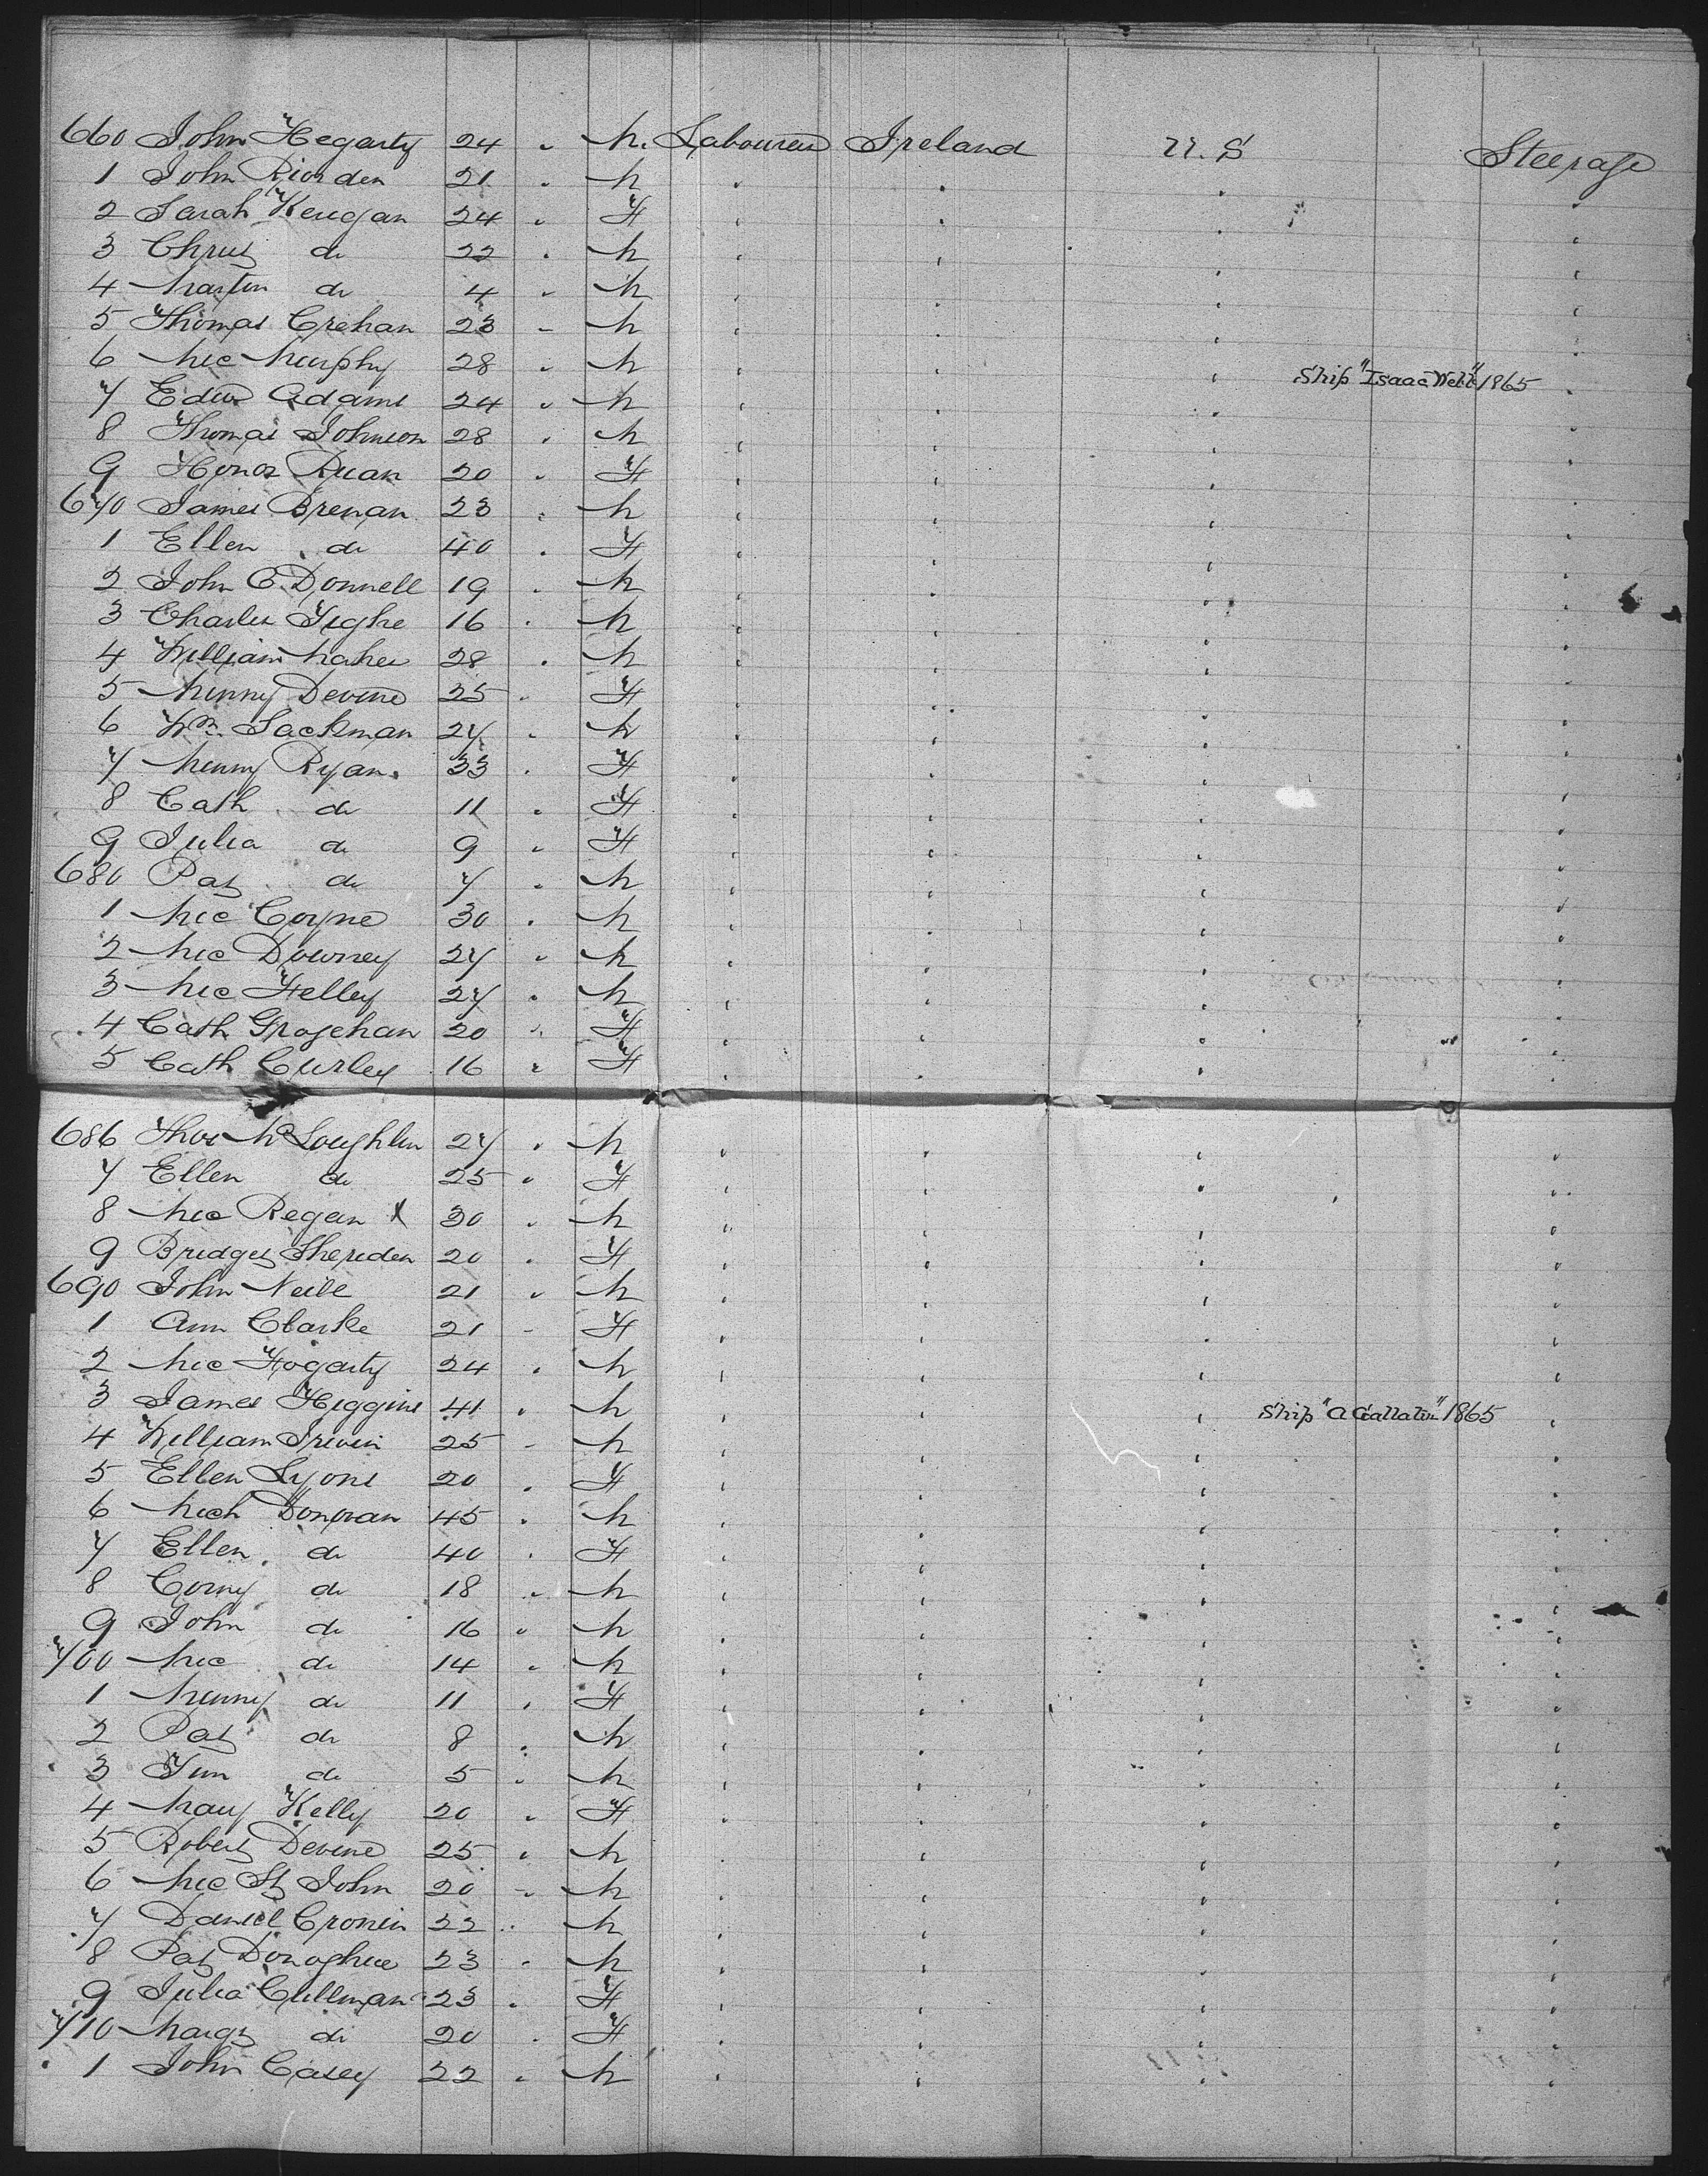 660 John Hegarty 24 " M. Labourer Ireland U.S Steerage
1 John Riorden 21 " M " " " "
2 Sarah Kerigan 24 " F " " " "
3 Chris do 22 " M " " " "
4 Martin do 4 " M " " " "
5 Thomas Crehan 23 " M " " " "
6 Mic Murphy 28 " M " " " "
Ship "Isaac Webb" 1865
7 Edwd Adams 24 " M " " " "
8 Thomas Johnson 28 " M " " " "
9 Honor Ruan 20 " F " " " "
670 James Brenan 23 " M " " " "
1 Ellen do 40 " F " " " "
2 John O'Donnell 19 " M " " " "
3 Charles Tighe 16 " M " " " "
4 William Maher 28 " M " " " "
5 Minny Devine 25 " F " " " "
6 Wm Lackman 27 " M " " " "
7 Minny Ryan 33 " F " " " "
8 Cath do 11 " F " " " "
9 Julia do 9 " F " " " "
680 Pat do 7 " M " " " "
1 Mic Coyne 30 " M " " " "
2 Mic Downey 27 " M " " " "
3 Mic Felley 27 " M " " " "
4 Cath 20 " F " " " "
5 Cath Curley 16 " F " " " "
686 Thos McLoughlin 27 " M " " " "
7 Ellen do 25 " F " " " "
8 Mic Regan X 30 " M " " " "
9 Bridget Sheriden 20 " F " " " "
690 John Neill 21 " M " " " "
1 Ann Clarke 21 " F " " " "
2 Mic Hogarty 24 " M " " " "
3 James Higgins 41 " M " " " "
Ship "A Gallatin" 1865
4 William Irwin 25 " M " " " "
5 Ellen Lyons 20 " F " " " "
6 Mich Donovan 45 " M " " " "
7 Ellen do 40 " F " " " "
8 Corny do 18 " M " " " "
9 John do 16 " M " " " "
700 Mic do 14 " M " " " "
1 Minny do 11 " F " " " "
2 Pat do 8 " M " " " "
3 Tim do 5 " M " " " "
4 Mary Kelly 20 " F " " " "
5 Robert Devine 25 " M " " " "
6 Mic St John 20 " M " " " "
7 Daniel Cronin 22 " M " " " "
8 Pat Donoghue 23 " M " " " "
9 Julia Cullinan 23 " F " " " "
710 Margt do 20 " F " " " "
1 John Casey 22 " M " " " "